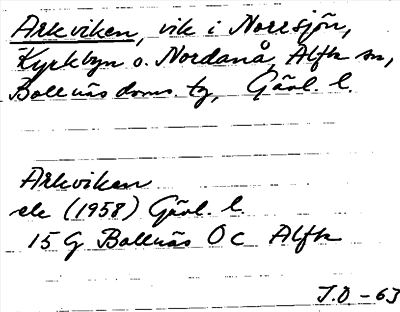 Arkviken, vik i Norrsjön,
Kyrkbyn o. Nordanå, Alfta sn,
Bollnäs doms. tg, Gävl. l.
Arkviken
ek (1958) Gävl. l.
15 G Bollnäs Ö C Alfta
J.Ö - 63